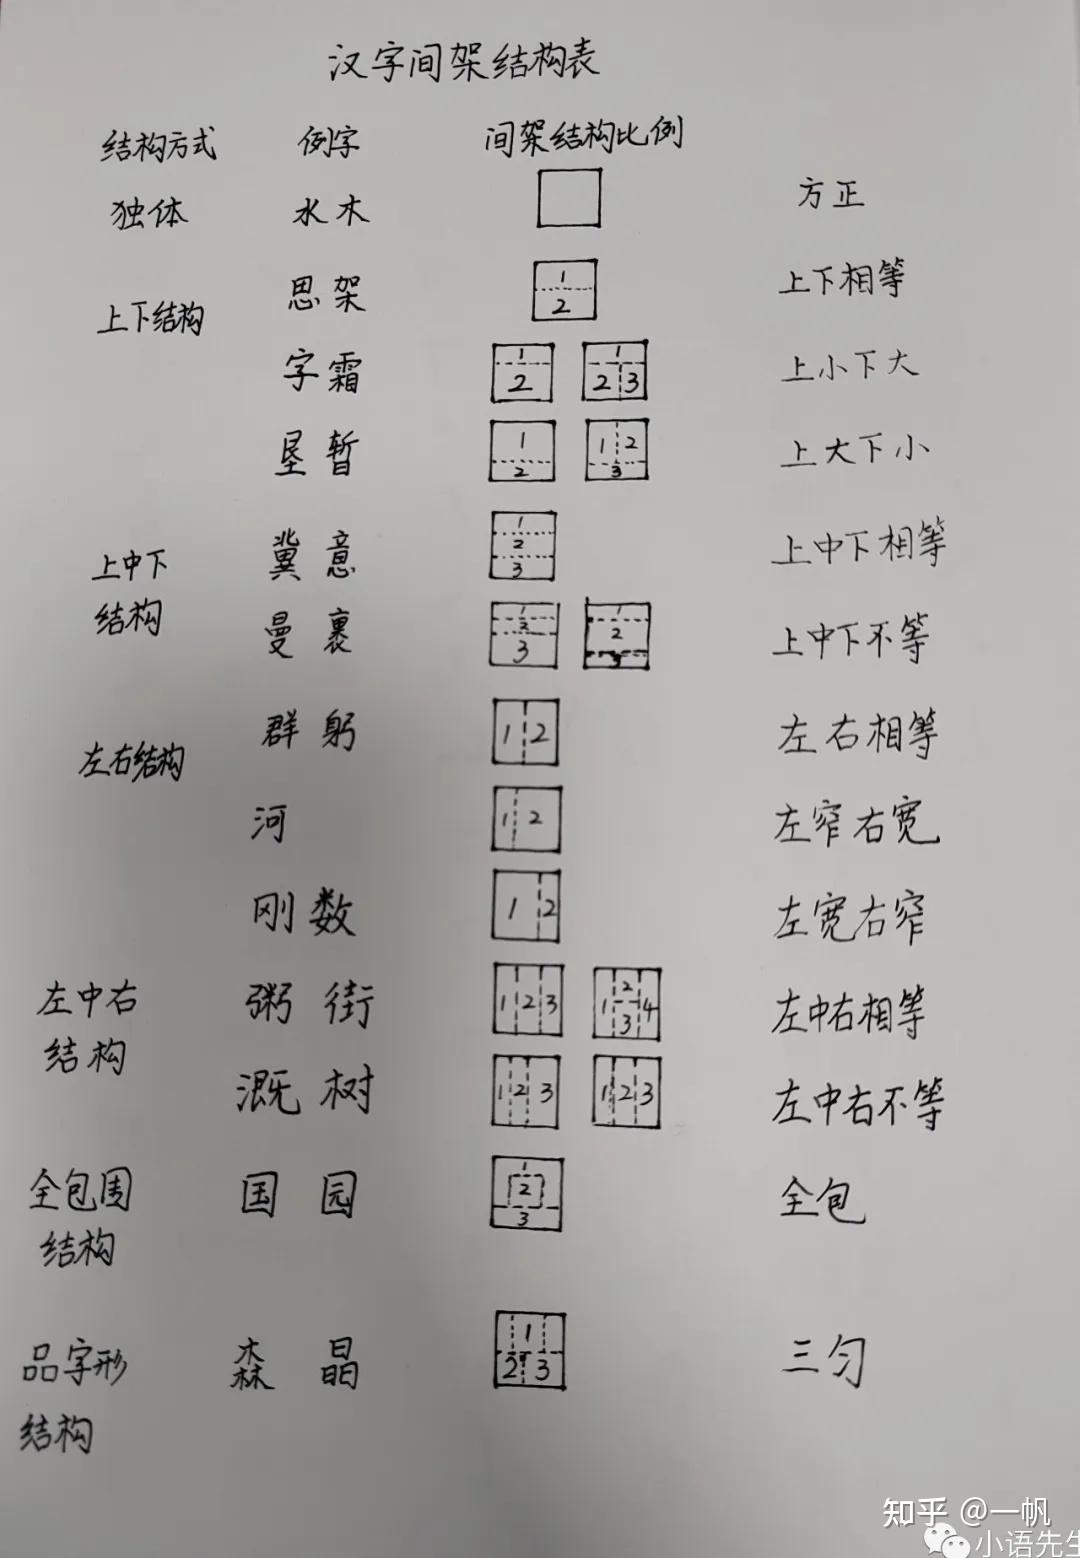 汉字间架结构表
结构方式 例字 间架结构比例
独体 水木 方正
上下结构 思架 1 2 上下相等
字霜 1 2 1 2 3 上小下大
垦暂 1 2 1 2 3 上大下小
上中下结构 冀意 1 2 3 上中下相等
曼裹 1 2 3 1 2 3 上中下不等
左右结构 群躬 1 2 左右相等
河 1 2 左窄右宽
刚数 1 2 左宽右窄
左中右结构 粥街 1 2 3 1 2 3 4 左中右相等
溉树 1 2 3 1 2 3 左中右不等
全包围结构 国园 1 2 3 全包
品字形结构 森晶 1 2 3 三匀
知乎 @一帆
小语先生